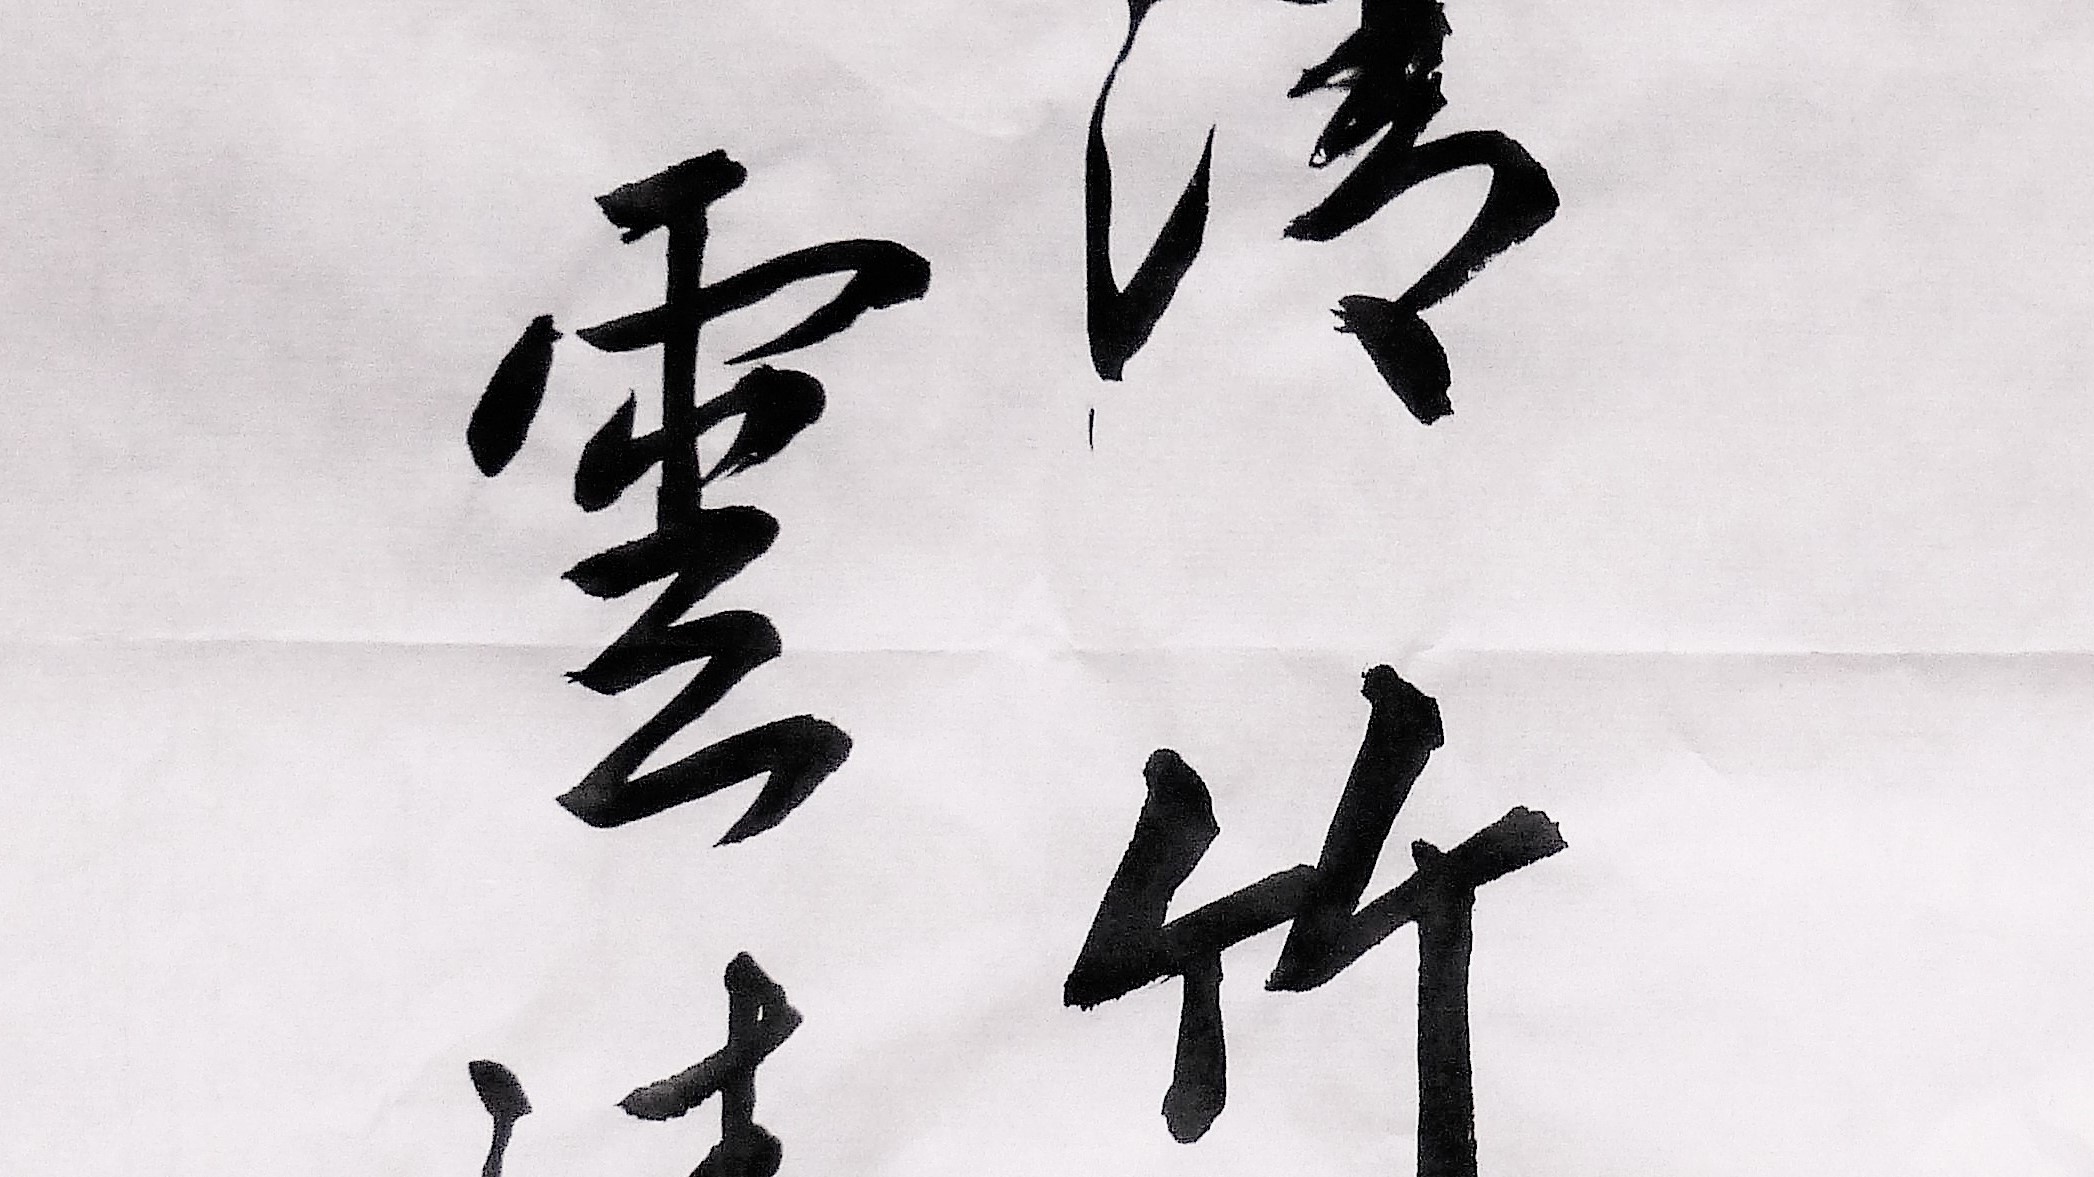 清竹
雲